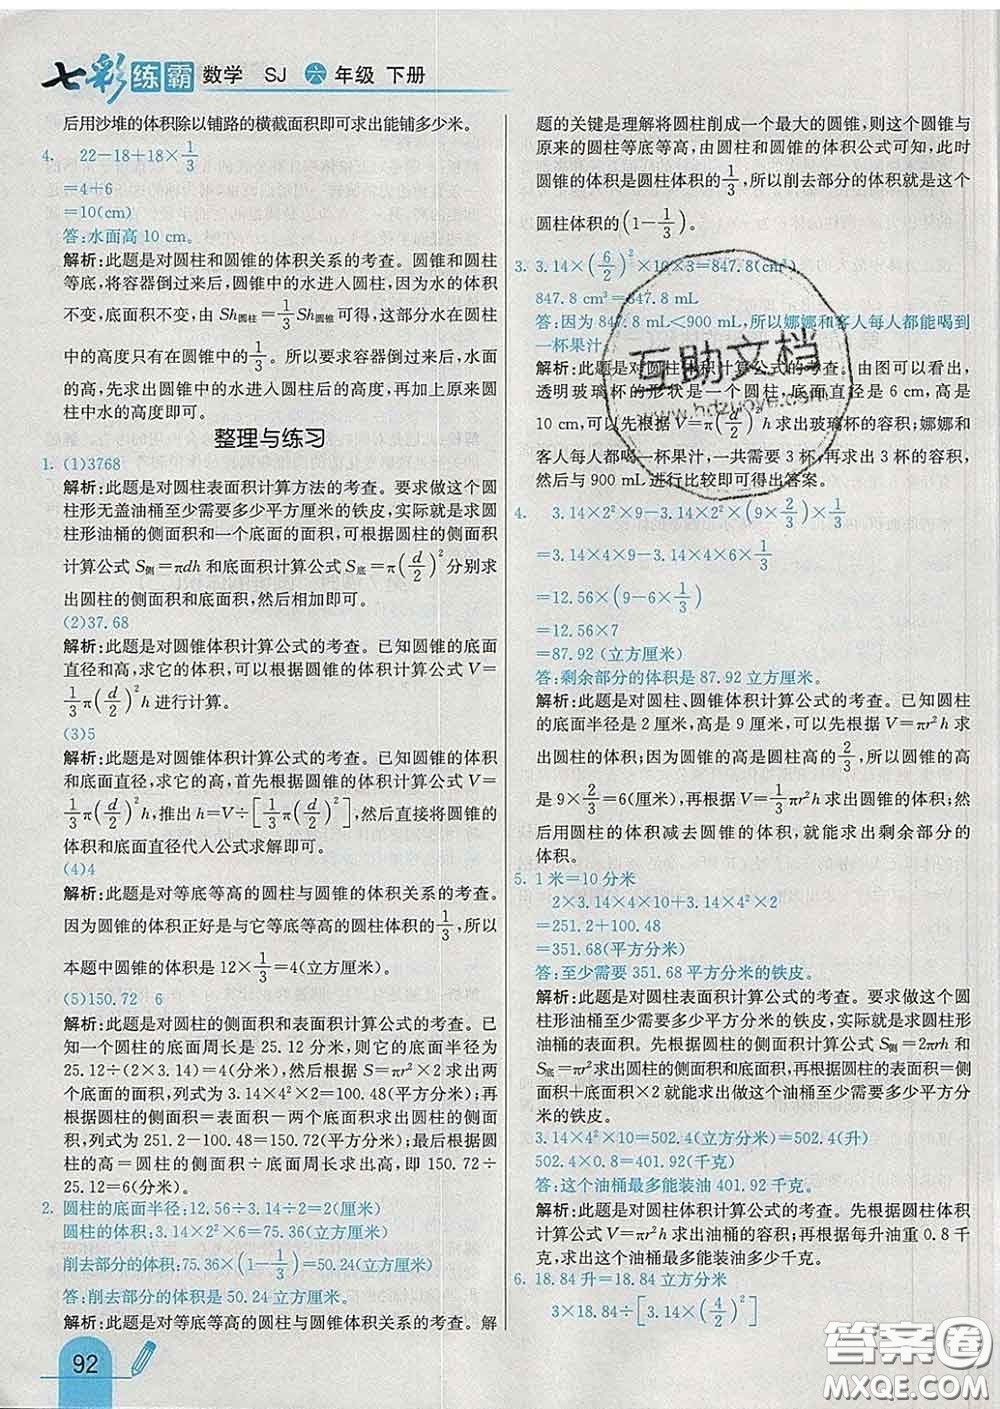 七彩练霸 数学 SJ 六年级 下册
后用沙堆的体积除以铺路的横截面积即可求出能铺多少米。
4. 22-18+18×1/3
=4+6
=10(cm)
答:水面高10 cm。
解析:此题是对圆柱和圆锥的体积关系的考查。圆锥和圆柱
等底,将容器倒过来后,圆锥中的水进入圆柱,因为水的体积
不变,底面积不变,由 Sh圆柱=1/3Sh圆锥可得,这部分水在圆柱
中的高度只有在圆锥中的1/3。所以要求容器倒过来后,水面
的高,先求出圆锥中的水进入圆柱后的高度,再加上原来圆
柱中水的高度即可。
整理与练习
1. (1)3768
解析:此题是对圆柱表面积计算方法的考查。要求做这个圆
柱形无盖油桶至少需要多少平方厘米的铁皮,实际就是求圆
柱形油桶的侧面积和一个底面的面积,可根据圆柱的侧面积
计算公式 S侧=πdh 和底面积计算公式 S底=π(d/2)²分别求
出圆柱的侧面积和底面积,然后相加即可。
(2)37.68
解析:此题是对圆锥体积计算公式的考查。已知圆锥的底面
直径和高,求它的体积,可以根据圆锥的体积计算公式 V=
1/3π(d/2)²h进行计算。
(3)5
解析:此题是对圆锥体积计算公式的考查。已知圆锥的体积
和底面直径,求它的高,首先根据圆锥的体积计算公式 V=
1/3π(d/2)²h,推出 h=V÷[1/3π(d/2)²],然后直接将圆锥
的体积和底面直径代入公式求解即可。
(4)4
解析:此题是对等底等高的圆柱与圆锥的体积关系的考查。
因为圆锥的体积正好是与它等底等高的圆柱体积的1/3,所以
本题中圆锥的体积是 12×1/3=4(立方厘米)。
(5)150.72 6
解析:此题是对圆柱的侧面积和表面积计算公式的考查。已
知一个圆柱的底面周长是 25.12 分米,则圆柱的底面半径为
25.12÷(2×3.14)=4(分米),然后根据 S=πr²×2 求出两
个底面的面积,列式为 3.14×4²×2=100.48(平方分米);再
根据圆柱的侧面积=表面积-两个底面积求出圆柱的侧面
积,列式为 251.2-100.48=150.72(平方分米);最后根据圆
柱的高=圆柱的侧面积÷底面周长求出高,即 150.72÷
25.12=6(分米)。
2. 圆柱的底面半径:12.56÷3.14÷2=2(厘米)
圆柱的体积:3.14×2²×6=75.36(立方厘米)
削去部分的体积:75.36×(1-1/3)=50.24(立方厘米)
答:削去部分的体积是 50.24 立方厘米。
解析:此题是对等底等高的圆柱与圆锥体积关系的考查。解
题的关键是理解将圆柱削成一个最大的圆锥,则这个圆锥与
原来的圆柱等底等高,由圆柱和圆锥的体积公式可知,此时
圆锥的体积是圆柱体积的1/3,所以削去部分的体积就是这个
圆柱体积的(1-1/3)。
3. 3.14×(6/2)²×10×3=847.8(cm³)
847.8 cm³=847.8 mL
答:因为 847.8 mL<900 mL,所以娜娜和客人每人都能喝到
一杯果汁。
解析:此题是对圆柱体积计算公式的考查。由图可以看出,
透明玻璃杯的形状是一个圆柱,底面直径是 6 cm,高是
10 cm,可以先根据 V=π(d/2)²h 求出玻璃杯的容积;娜娜和
客人每人都能喝一杯果汁,一共需要 3 杯,再求出 3 杯的容积,
然后与 900 mL 进行比较即可得出答案。
4. 3.14×2²×9-3.14×2²×(9×2/3)×1/3
=3.14×4×9-3.14×4×6×1/3
=12.56×(9-6×1/3)
=12.56×7
=87.92(立方厘米)
答:剩余部分的体积是 87.92 立方厘米。
解析:此题是对圆柱、圆锥体积计算公式的考查。已知圆柱
的底面半径是 2 厘米,高是 9 厘米,可以先根据 V=πr²h 求
出圆柱的体积;因为圆锥的高是圆柱高的2/3,所以圆锥的高
是 9×2/3=6(厘米),再根据 V=1/3πr²h 求出圆锥的体积;然
后用圆柱的体积减去圆锥的体积,就能求出剩余部分的
体积。
5. 1 米=10 分米
2×3.14×4×10+3.14×4²×2
=251.2+100.48
=351.68(平方分米)
答:至少需要 351.68 平方分米的铁皮。
解析:此题是对圆柱表面积计算公式的考查。要求做这个圆
柱形油桶至少需要多少平方分米的铁皮,实际就是求圆柱形
油桶的表面积。先根据圆柱的侧面积计算公式 S侧=2πrh 和
S底=πr²求出圆柱的侧面积和底面积,再根据圆柱的表面积=侧
面积+底面积×2 就能求出做这个油桶至少需要多少平方分
米的铁皮。
3.14×4²×10=502.4(立方分米)=502.4(升)
502.4×0.8=401.92(千克)
答:这个油桶最多能装油 401.92 千克。
解析:此题是对圆柱体积计算公式的考查。先根据圆柱体积
计算公式 V=πr²h 求出油桶的容积;再根据每升油重 0.8 千
克,求出这个油桶最多能装油多少千克。
6. 18.84 升=18.84 立方分米
3×18.84÷[3.14×(4/2)²]
92
互助文档
www.hdzuoye.com
答案圈
MXQE.COM